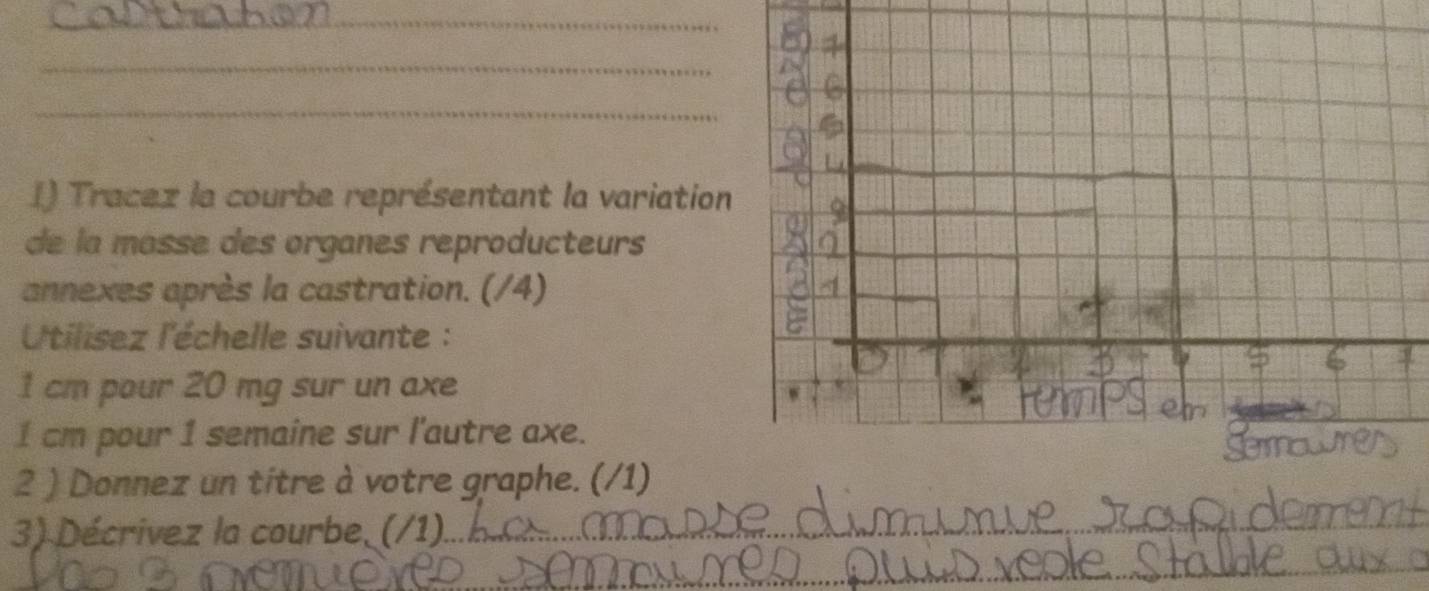 castration
1) Tracez la courbe représentant la variation
de la masse des organes reproducteurs
annexes après la castration. (/4)
Utilisez l'échelle suivante :
1 cm pour 20 mg sur un axe
1 cm pour 1 semaine sur l'autre axe.
2 ) Donnez un titre à votre graphe. (/1)
3) Décrivez la courbe. (/1) La masse diminue rapidement
les 3 premières semaines puis reste stable aux
masse des orga
7
6
5
4
3
2
1
0 1 2 3 4 5 6 7
temps en
semaines